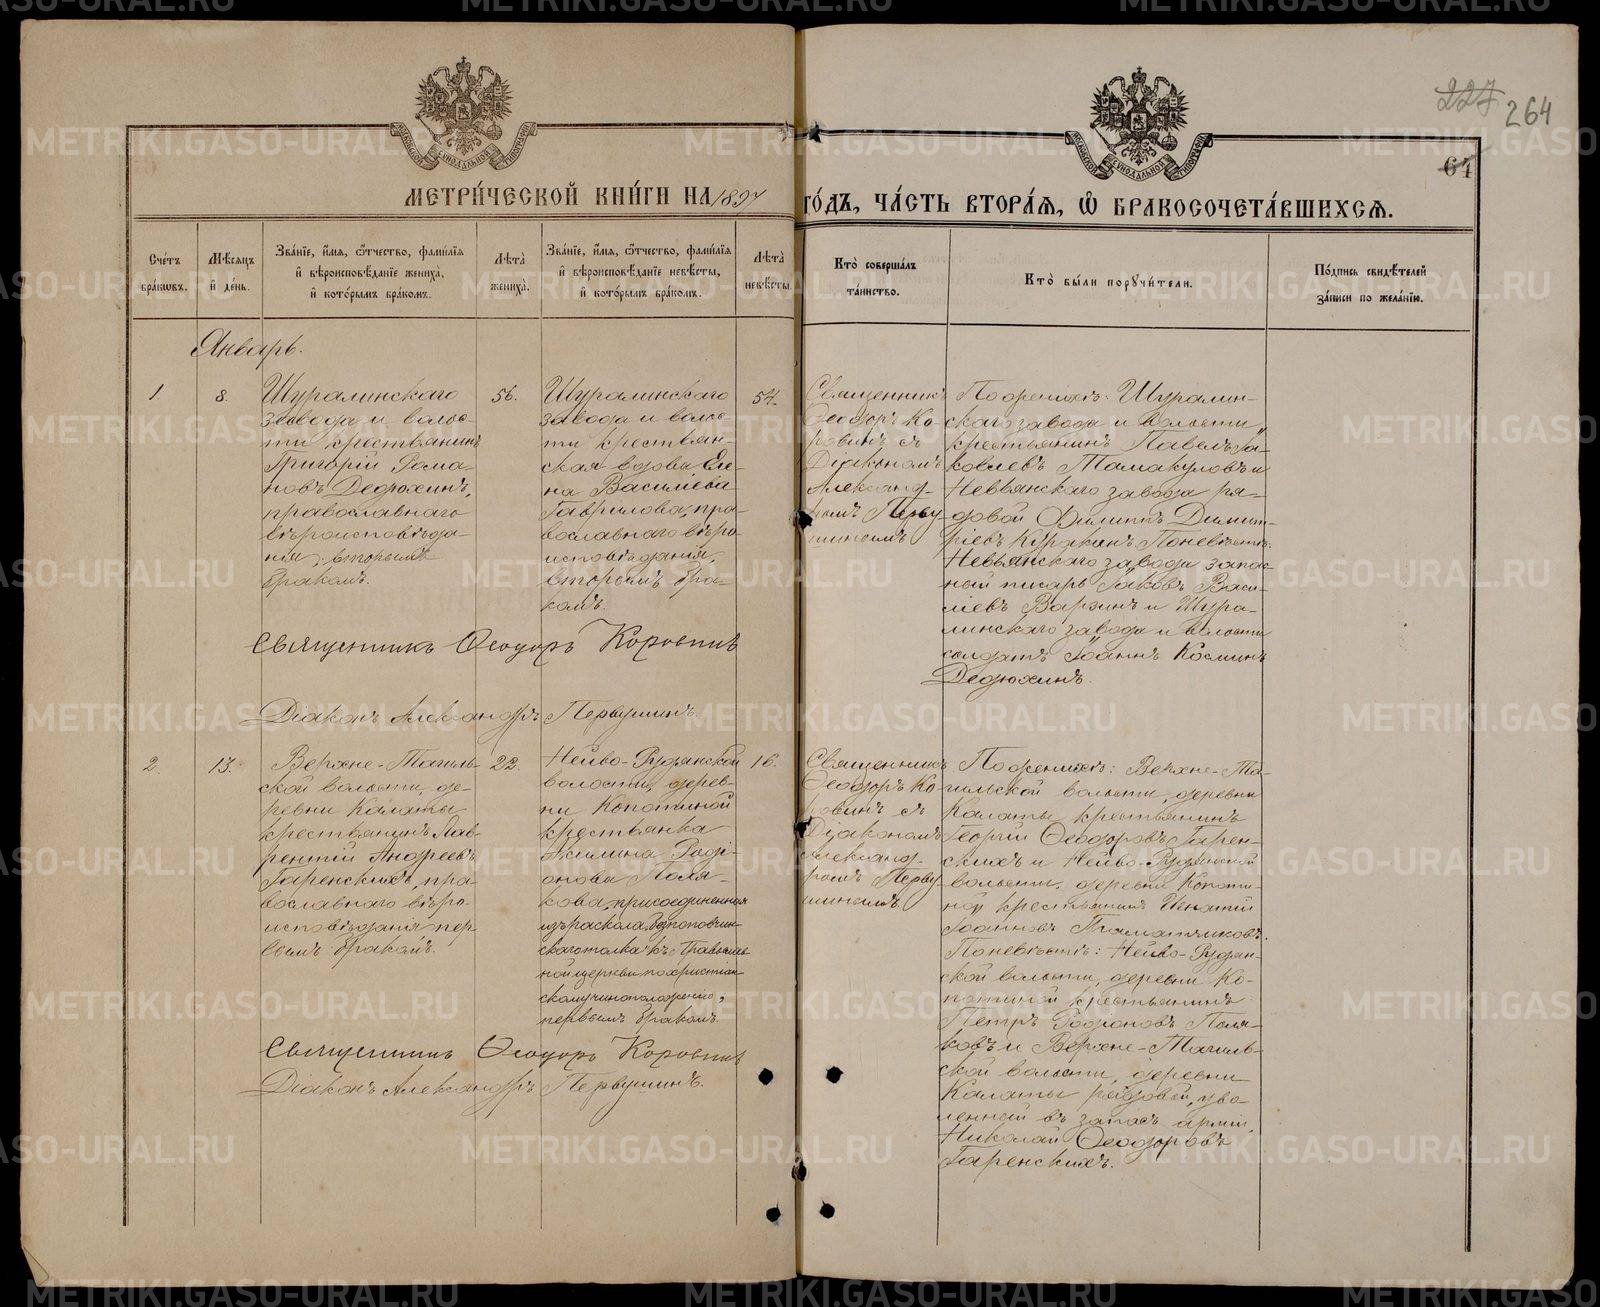 227 264
64
МОСКОВСКОЙ СѴНОДАЛЬНОЙ ТИПОГРАФІИ
МОСКОВСКОЙ СѴНОДАЛЬНОЙ ТИПОГРАФІИ
МЕТРИ́ЧЕСКОЙ КНИ́ГИ НА 1897 ГО́ДЪ, ЧА́СТЬ ВТОРА́Ѧ, Ѡ БРАКОСОЧЕТА́ВШИХСѦ.
Сче́тъ бра́кωвъ.
Мѣ́сѧцъ и҆ де́нь.
Зва́нїе, и҆́мѧ, ѻ҆́тчество, фами́лїѧ и҆ вѣроисповѣ́данїе жениха̀, и҆ кото́рымъ бра́комъ.
Лѣ́та жениха̀.
Зва́нїе, и҆́мѧ, ѻ҆́тчество, фами́лїѧ и҆ вѣроисповѣ́данїе невѣ́сты, и҆ кото́рымъ бра́комъ.
Лѣ́та невѣ́сты.
Кто̀ соверша́лъ та́инство.
Кто̀ бы́ли порꙋчи́тели.
По́дпись свидѣ́телей за́писи по жела́нїю.
Январь.
1
8.
Шуралинскаго
завода и волос-
ти крестьянинъ
Григорій Рома-
новъ Дедюхинъ,
православнаго
вѣроисповѣда-
нія, вторымъ
бракомъ.
56.
Шуралинскаго
завода и волос-
ти крестьян-
ская вдова Еле-
на Василіева
Гаврилова, пра-
вославнаго вѣро-
исповѣданія,
вторымъ бра-
комъ.
54.
Священникъ
Ѳеодоръ Ко-
ровинъ съ
Діакономъ
Александ-
ромъ Перву-
шинымъ
По женихѣ: Шуралин-
скаго завода и волости,
крестьянинъ Павелъ Іа-
ковлевъ Тамакуловъ и
Невьянскаго завода ря-
довой Филиппъ Димит-
ріевъ По невѣстѣ:
Невьянскаго завода запас-
ный писарь Іаковъ Васи-
ліевъ Варзинъ и Шура-
линскаго завода и волости
солдатъ Іоаннъ Косминъ
Дедюхинъ.
Священникъ Ѳеодоръ Коровинъ
Діаконъ Александръ Первушинъ.
2.
13.
Верхне-Тагиль-
ской волости, де-
ревни Калаты
крестьянинъ Лав-
рентій Андреевъ
Гаренскихъ, пра-
вославнаго вѣро-
исповѣданія пер-
вымъ бракомъ.
22.
Нейво-Рудянской
волости, дерев-
ни Копотиной
крестьянка
Акилина Роді-
онова Поля-
кова, присоединенная
изъ раскола безпоповщин-
скаго толка къ Православ-
ной церкви по христіан-
скому чиноположенію,
первымъ бракомъ.
16.
Священникъ
Ѳеодоръ Ко-
ровинъ съ
Діакономъ
Александ-
ромъ Перву-
шинымъ
По женихѣ: Верхне-Та-
гильской волости, деревни
Калаты крестьянинъ
Георгій Ѳеодоровъ Гарен-
скихъ и Нейво-Рудянской
волости, деревни Копоти-
ной крестьянинъ Игнатій
Іоанновъ Граматчиковъ.
По невѣстѣ: Нейво-Рудян-
ской волости, деревни Ко-
потиной крестьянинъ
Петръ Родіоновъ Поля-
ковъ и Верхне-Тагиль-
ской волости, деревни
Калаты рядовой, уво-
ленный въ запасъ арміи,
Николай Ѳеодоровъ
Гаренскихъ.
Священникъ Ѳеодоръ Коровинъ
Діаконъ Александръ Первушинъ.
METRIKI.GASO-URAL.RU